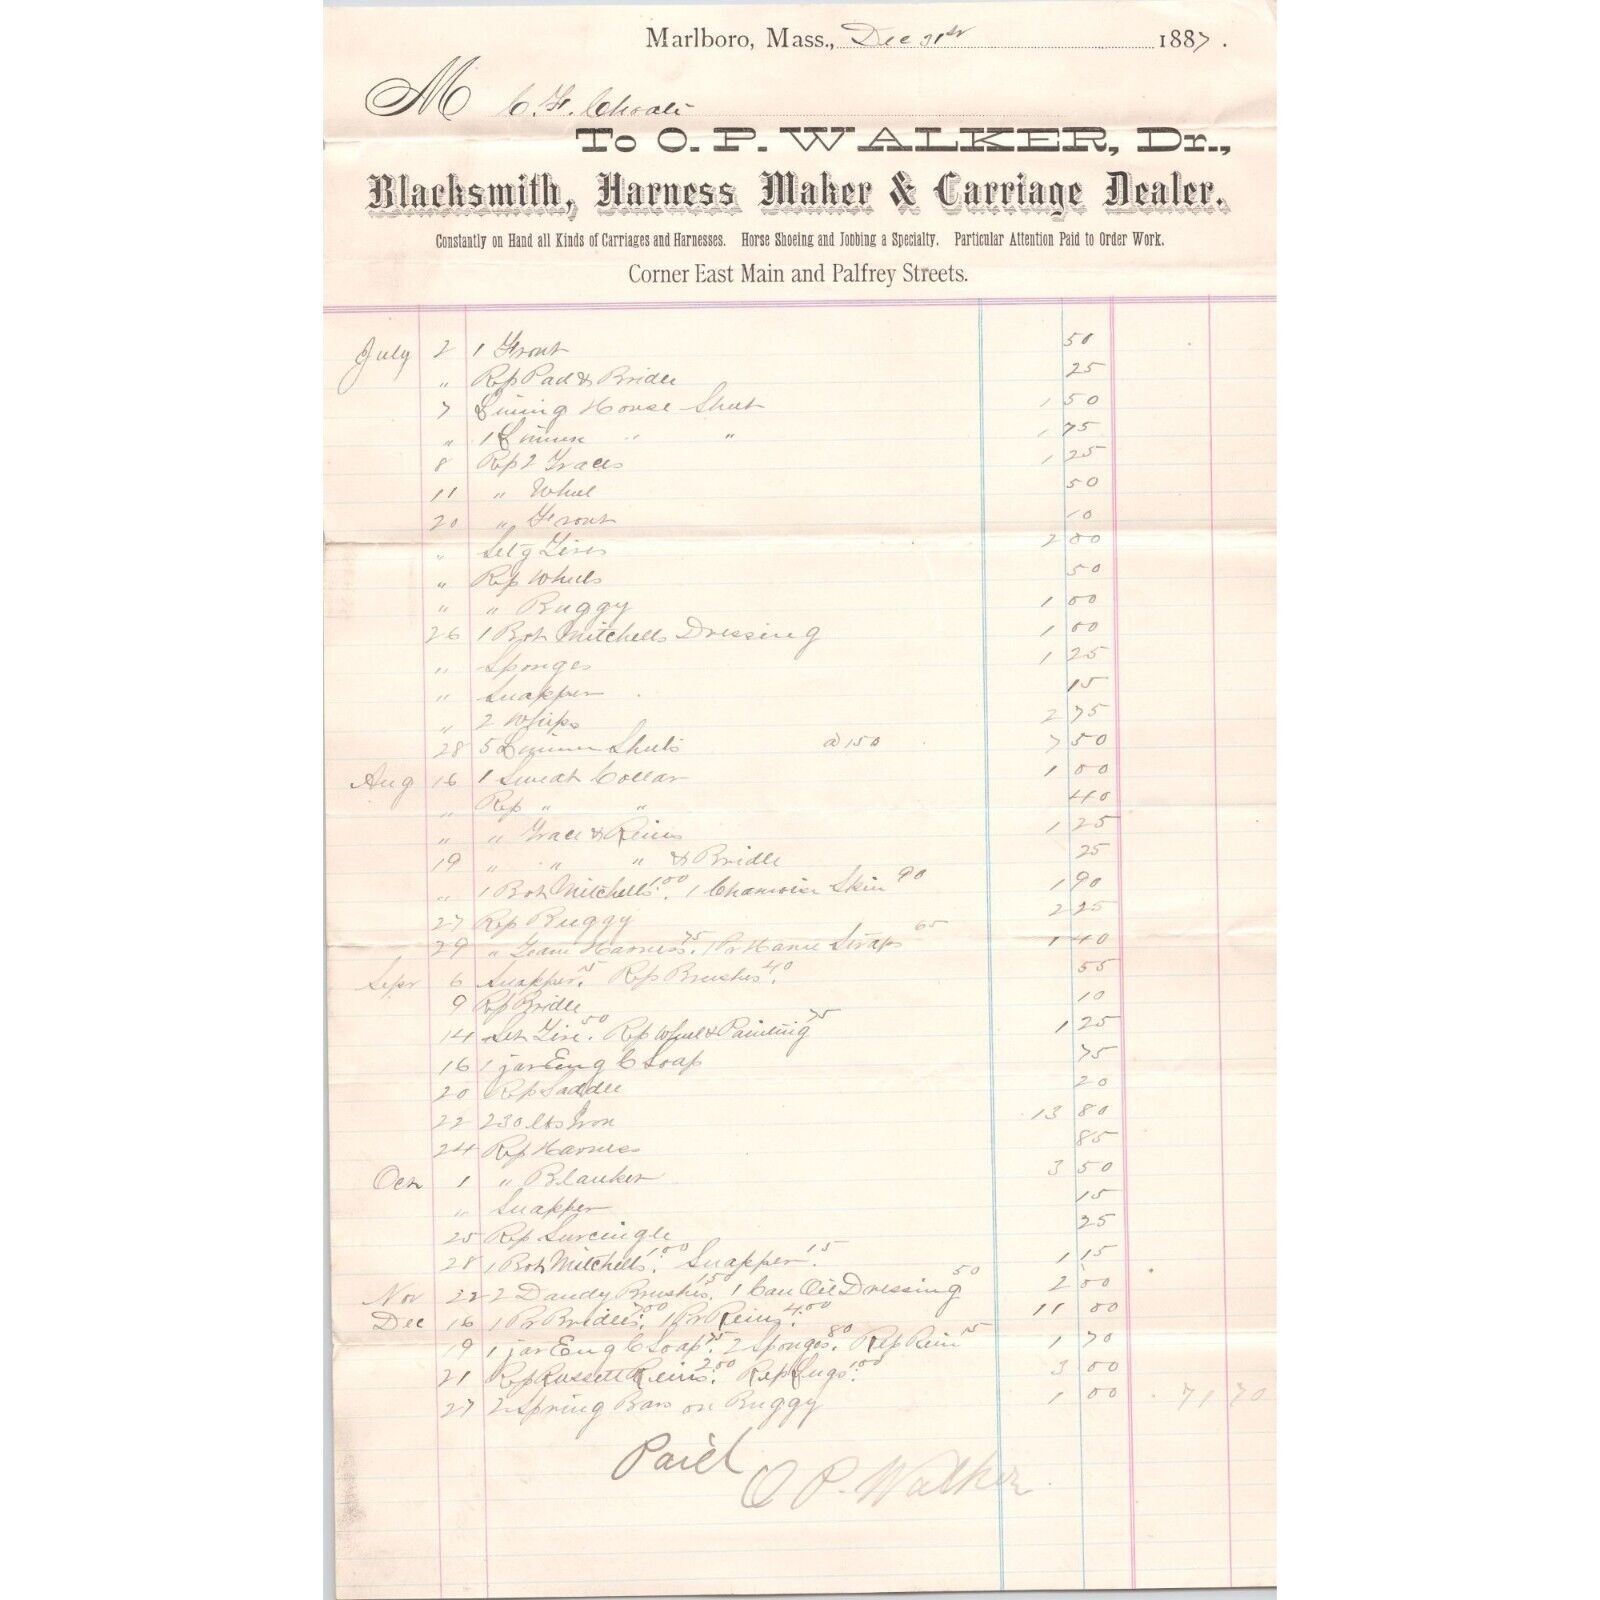 Marlboro, Mass., Dec 31st 1887.
M C. F. Choate
To O. P. WALKER, Dr.,
Blacksmith, Harness Maker & Carriage Dealer.
Constantly on Hand all Kinds of Carriages and Harnesses. Horse Shoeing and Jobbing a Specialty. Particular Attention Paid to Order Work.
Corner East Main and Palfrey Streets.
July 2 1 Front 50
" Rep Pad & Bridle 25
7 Lining Horse Sheet 1 50
" 1 Linnen " " 1 75
8 Rep 2 Traces 1 25
11 " Wheel 50
20 " Front 10
" Setg Tires 2 00
" Rep Wheels 50
" " Buggy 1 00
26 1 Bot Mitchells Dressing 1 00
" Sponges 1 25
" Snapper 15
" 2 Whips 2 75
28 5 Linnen Sheets @ 1 50 7 50
Aug 16 1 Sweat Collar 1 00
" Rep " " 40
" " Trace & Reins 1 25
19 " " " & Bridle 25
" 1 Bot Mitchells 1.00. 1 Chamois Skin 90 1 90
27 Rep Buggy 2 25
29 " Team Harness 75. 1 Pr Hame Straps 65 1 40
Sept 6 Snapper 15. Rep Brushes 40. 55
9 Rep Bridle 10
14 Set Tire 50. Rep Wheel & Painting 75 1 25
16 1 jar Eng C Soap 75
20 Rep Saddle 20
22 230 lbs Iron 13 80
24 Rep Harness 85
Oct 1 " Blanket 3 50
" Snapper 15
25 Rep Surcingle 25
28 1 Bot Mitchells 1.00. Snapper 15. 1 15
Nov 22 2 Dandy Brushes 1 50. 1 Can Oil Dressing 50 2 00
Dec 16 1 Pr Bridles 7.00. 1 Pr Reins 4.00. 11 00
19 1 jar Eng C Soap 75. 2 Sponges 80. Rep Rein 15 1 70
21 Rep Russett Reins 2.00. Rep Lugs 1.00. 3 00
27 2 Spring Bars on Buggy 1 00 71 70
Paid
O P. Walker